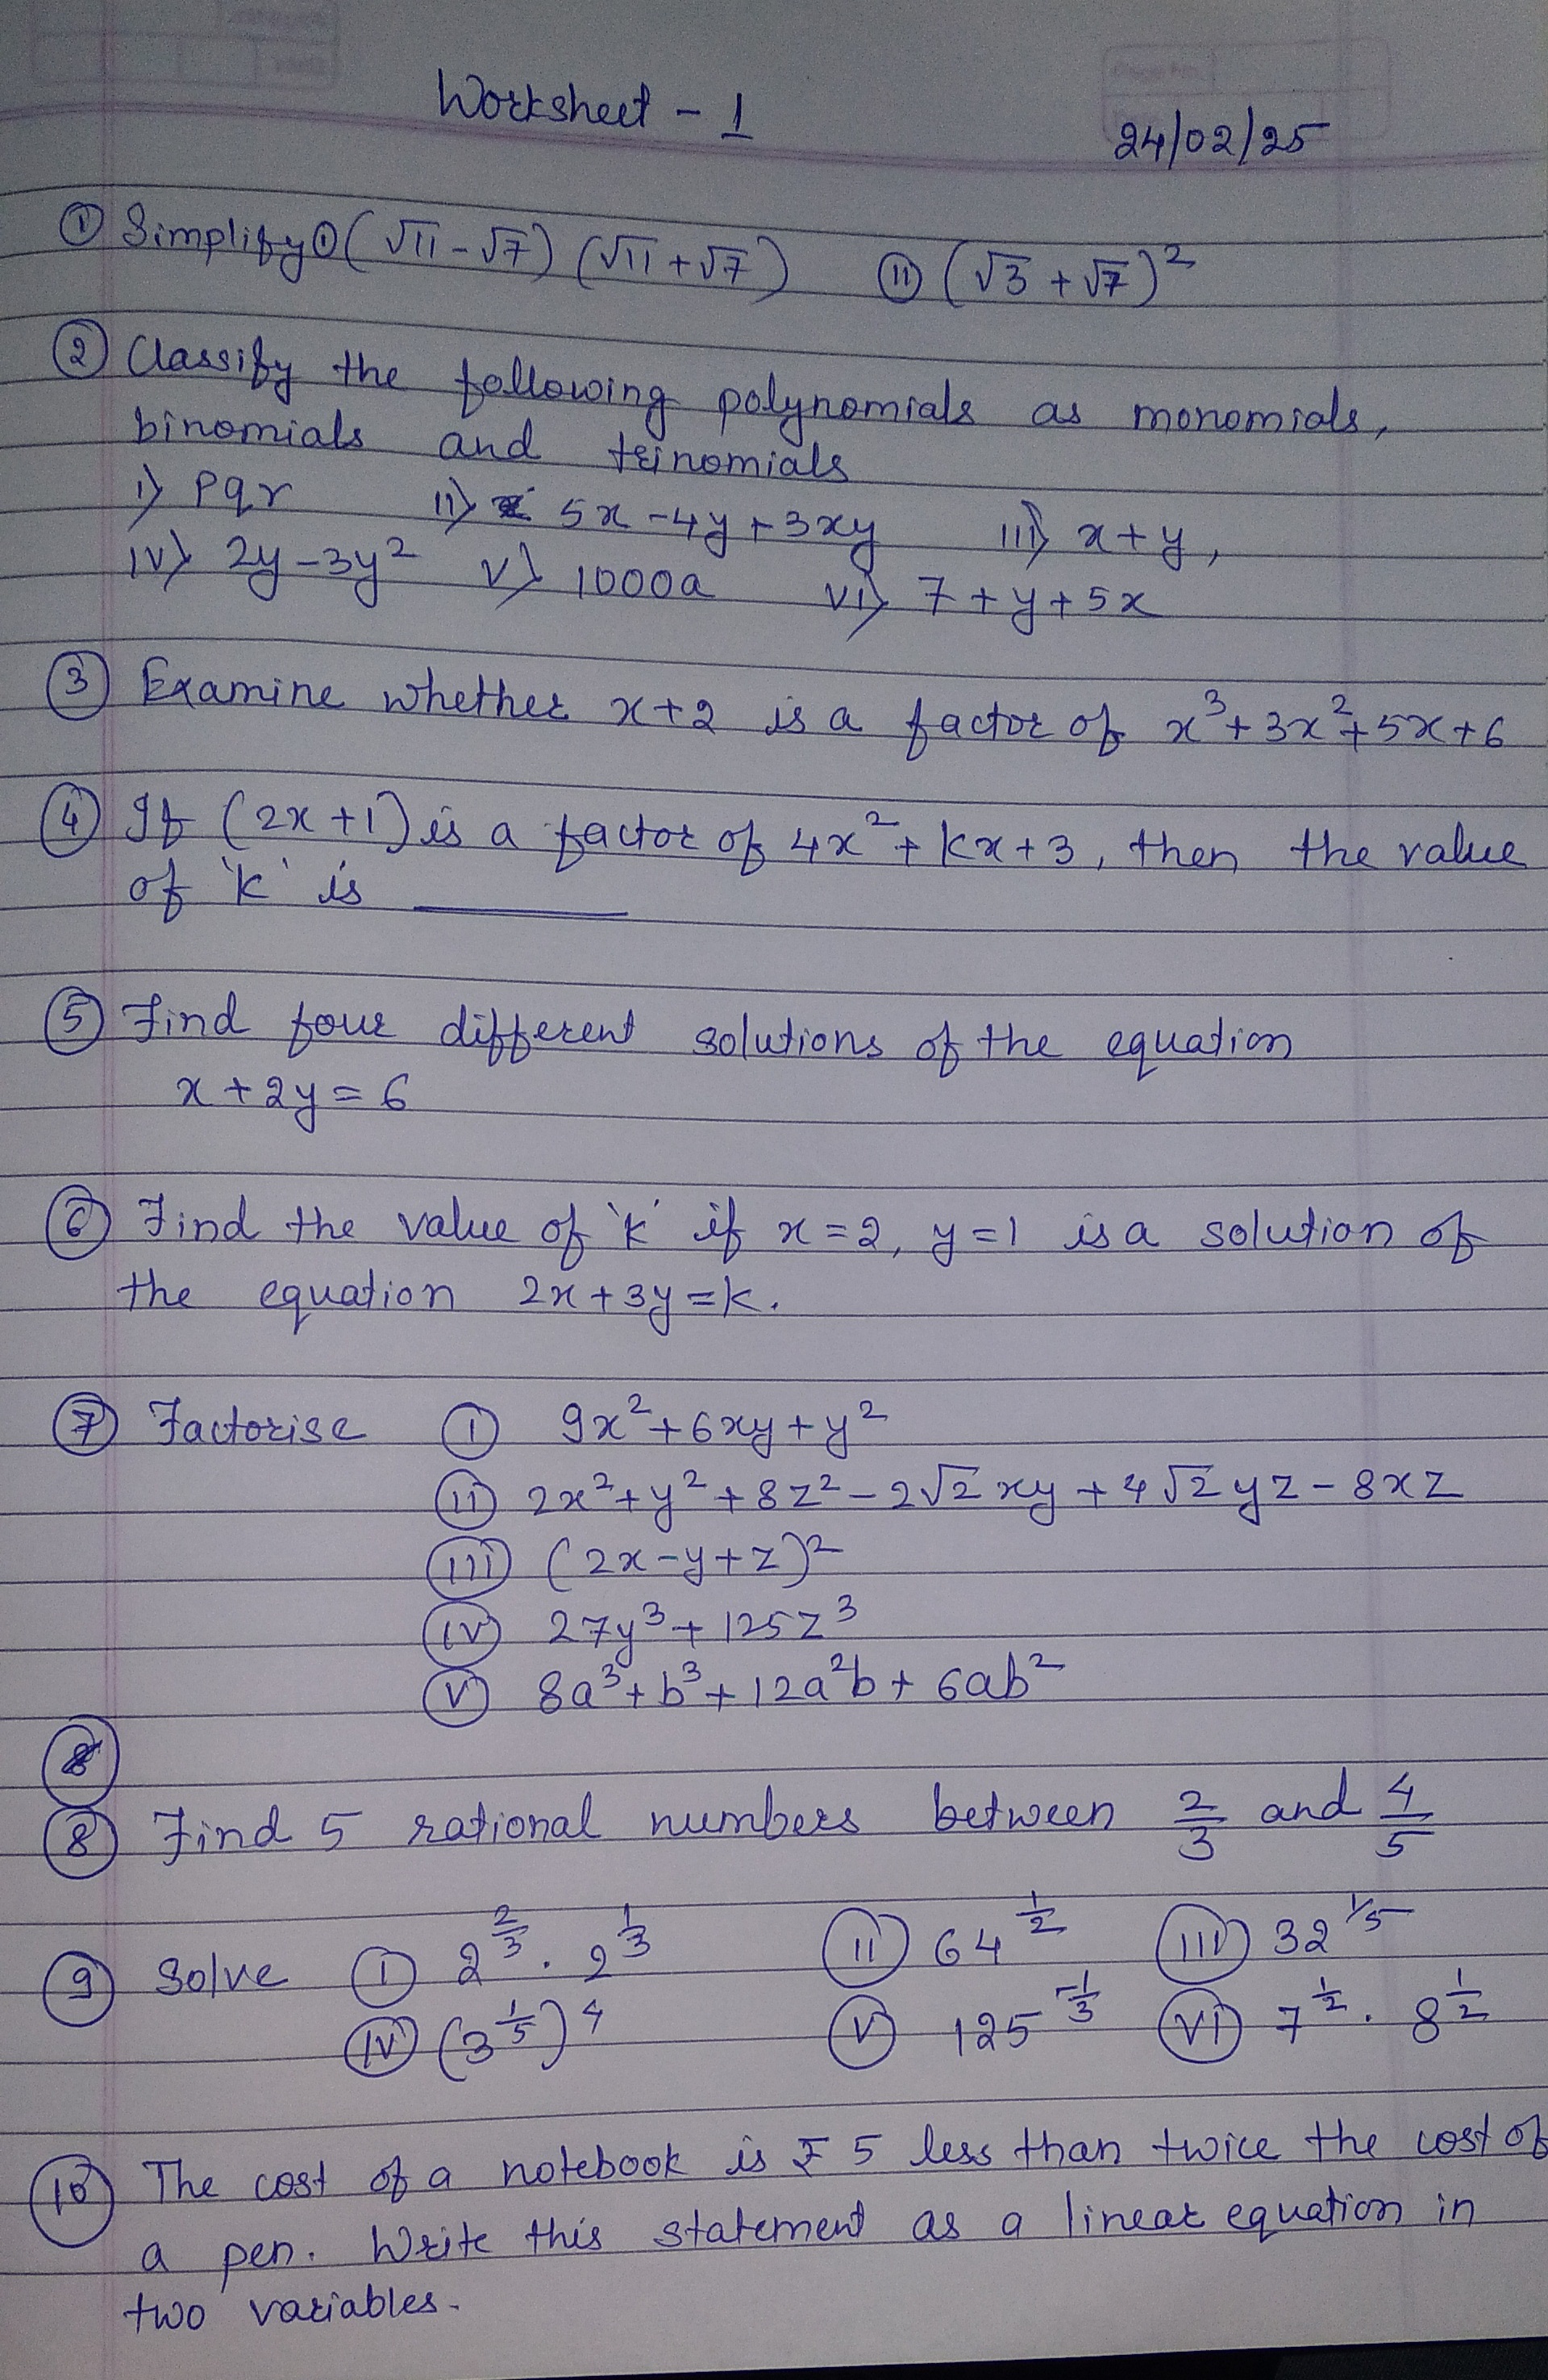 Worksheet - 1
24/02/25
① Simplify ① (√11 - √7) (√11 + √7) ⑪ (√3 + √7)²
② Classify the following polynomials as monomials,
binomials and trinomials
i) pqr ii) 5x - 4y + 3xy iii) x + y,
iv) 2y - 3y² v) 1000a vi) 7 + y + 5x
③ Examine whether x+2 is a factor of x³ + 3x² + 5x + 6
④ If (2x + 1) is a factor of 4x² + kx + 3, then the value
of 'k' is ______
⑤ Find four different solutions of the equation
x + 2y = 6
⑥ Find the value of 'k' if x = 2, y = 1 is a solution of
the equation 2x + 3y = k.
⑦ Factorise (i) 9x² + 6xy + y²
(ii) 2x² + y² + 8z² - 2√2 xy + 4√2 yz - 8xz
(iii) (2x - y + z)²
(iv) 27y³ + 125z³
(v) 8a³ + b³ + 12a²b + 6ab²
⑧
⑧ Find 5 rational numbers between 2/3 and 4/5
⑨ Solve (i) 2^(2/3) . 2^(1/3) (ii) 64^(1/2) (iii) 32^(1/5)
(iv) (3^(1/5))^4 (v) 125^(-1/3) (vi) 7^(1/2) . 8^(1/2)
⑩ The cost of a notebook is ₹ 5 less than twice the cost of
a pen. Write this statement as a linear equation in
two variables.